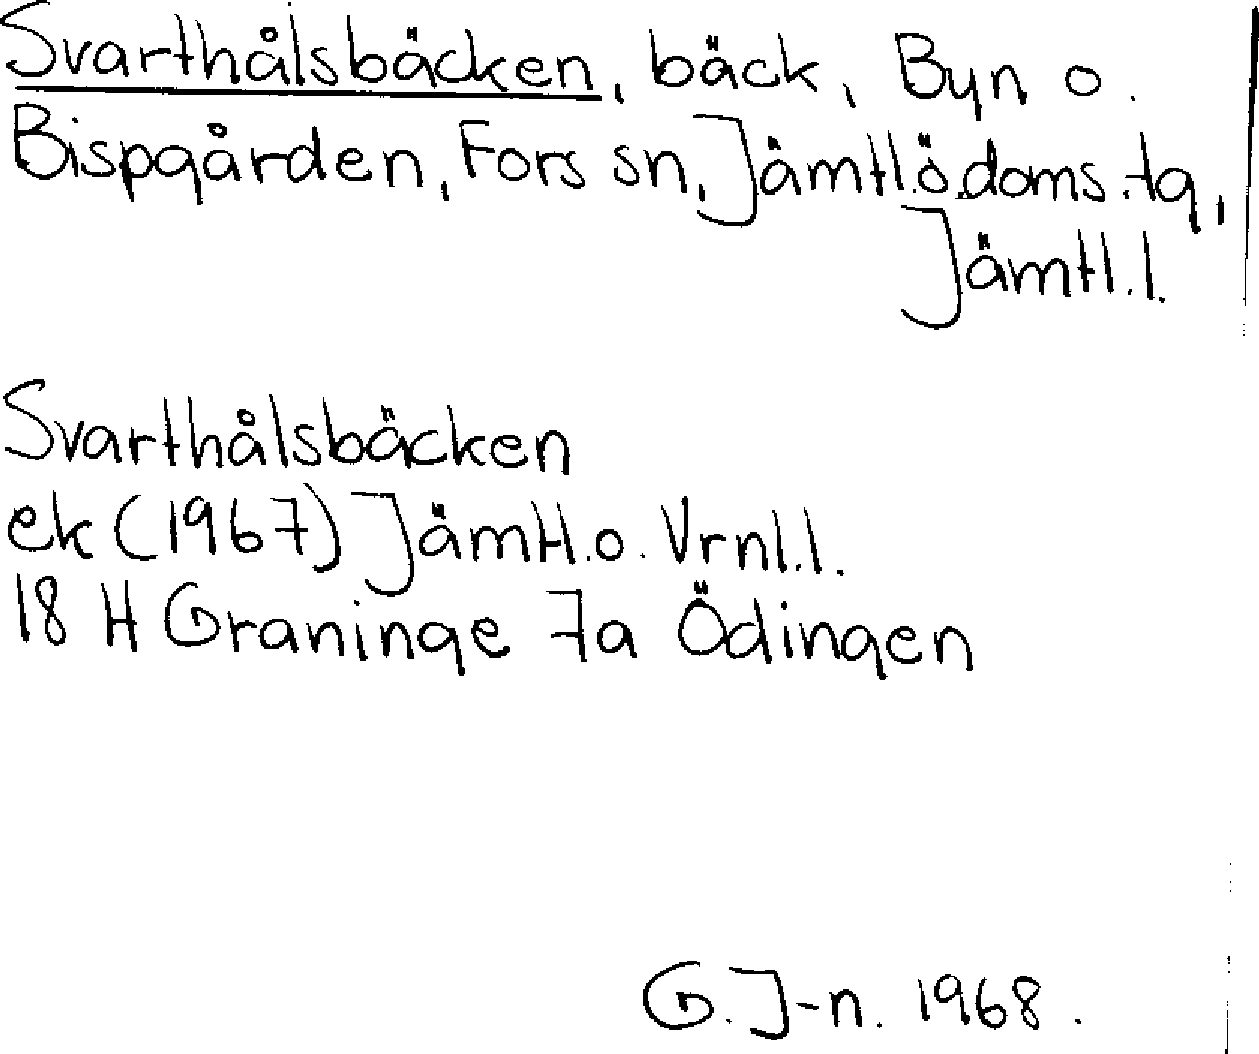 Svarthålsbäcken, bäck, Byn o.
Bispgården, Fors sn, Jämtl.ö.doms.tg,
Jämtl.l.
Svarthålsbäcken
ek (1967) Jämtl.o. Vrnl.l.
18 H Graninge 7a Ödingen
G. J-n. 1968.